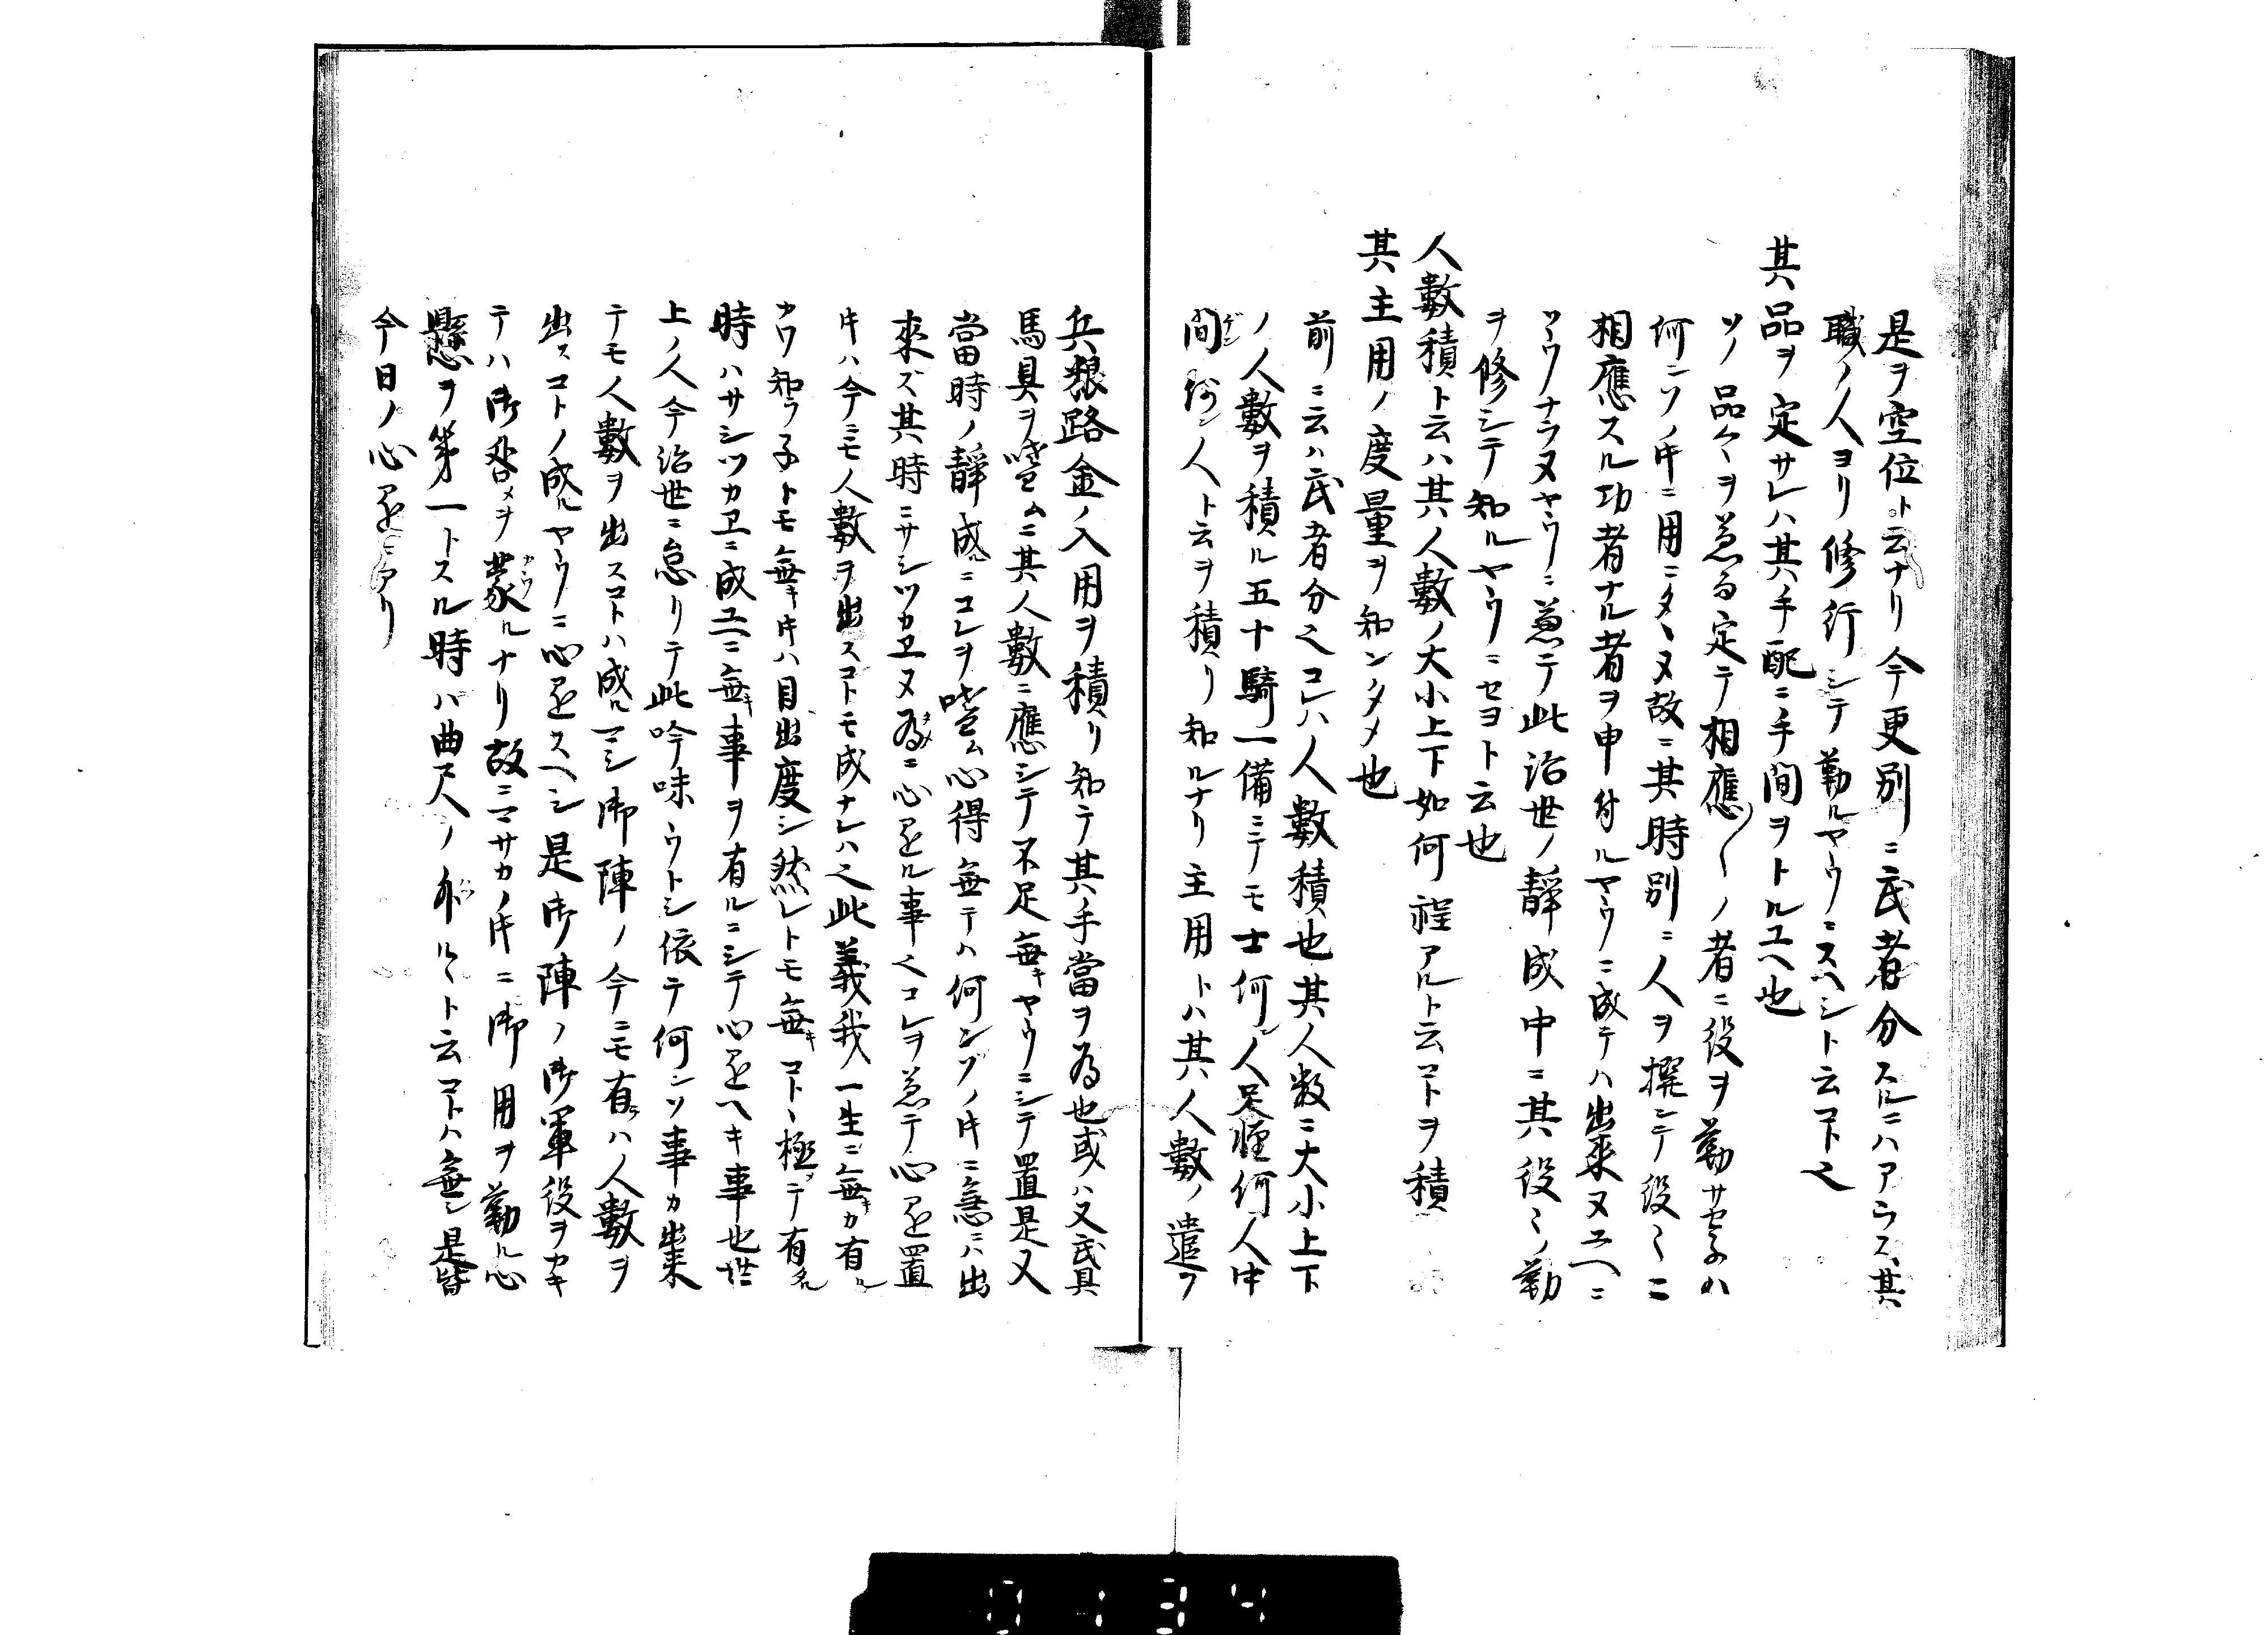 是ヲ空位ト云ナリ今更別ニ武者分スルニハアラス其
職ノ人ヨリ修行シテ勤ルヤウニスヘシト云コト之
其品ヲ定サレハ其手配ニ手間ヲトルユヘ也
ソノ品々ヲ兼而定テ相應〱ノ者ニ役ヲ勤サセ子ハ
何ンソノ時ニ用ニタヽヌ故ニ其時別ニ人ヲ撰シテ役〻ニ
相應スル功者ナル者ヲ申付ルヤウニ成テハ出来ヌユヘニ
ソウナラヌヤウニ兼テ此治世ノ静成中ニ其役〻ノ勤
ヲ修シテ知ルヤウニセヨト云也
人數積ト云ハ其人數ノ大小上下如何程アルト云コトヲ積
其主用ノ度量ヲ知ンタメ也
前ニ云ハ武者分之コレハ人數積也其人数ニ大小上下
ノ人數ヲ積ル五十騎一備ニテモ士何ン人足輕何人中
間何ン人ト云ヲ積リ知ルナリ主用トハ其人數ノ遣フ
兵粮路金ノ入用ヲ積リ知テ其手當ヲ為也或ハ又武具
馬具ヲ嗜ムニ其人數ニ應シテ不足無キヤウニシテ置是又
當時ノ静成ニコレヲ嗜ム心得無テハ何ンゾノ時ニ急ニハ出
來ズ其時ニサシツカヱヌ為ニ心還ル事之コレヲ兼テ心還置
時ハ今ニモ人數ヲ出スコトモ成ナレハ之此義我一生ニ無キカ有ル
カワ知ラ子トモ無キ時ハ目出度シ然レトモ無キコトヽ極テ有ル
時ハサシツカヱニ成ユヘニ無キ事ヲ有ルニシテ心還ヘキ事也世
上ノ人今治世ニ怠リテ此吟味ウトシ依テ何ンソ事カ出来
テモ人數ヲ出スコトハ成ルマシ御陣ノ今ニモ有ラハ人數ヲ
出スコトノ成ルヤウニ心還スヘシ是御陣ノ御軍役ヲカキ
テハ御咎メヲ蒙ルナリ故ニマサカノ時ニ御用ヲ勤ル心
懸ヲ第一トスル時ハ曲尺ノ外ルヽト云コトハ無シ是皆
今日ノ心還ニアリ